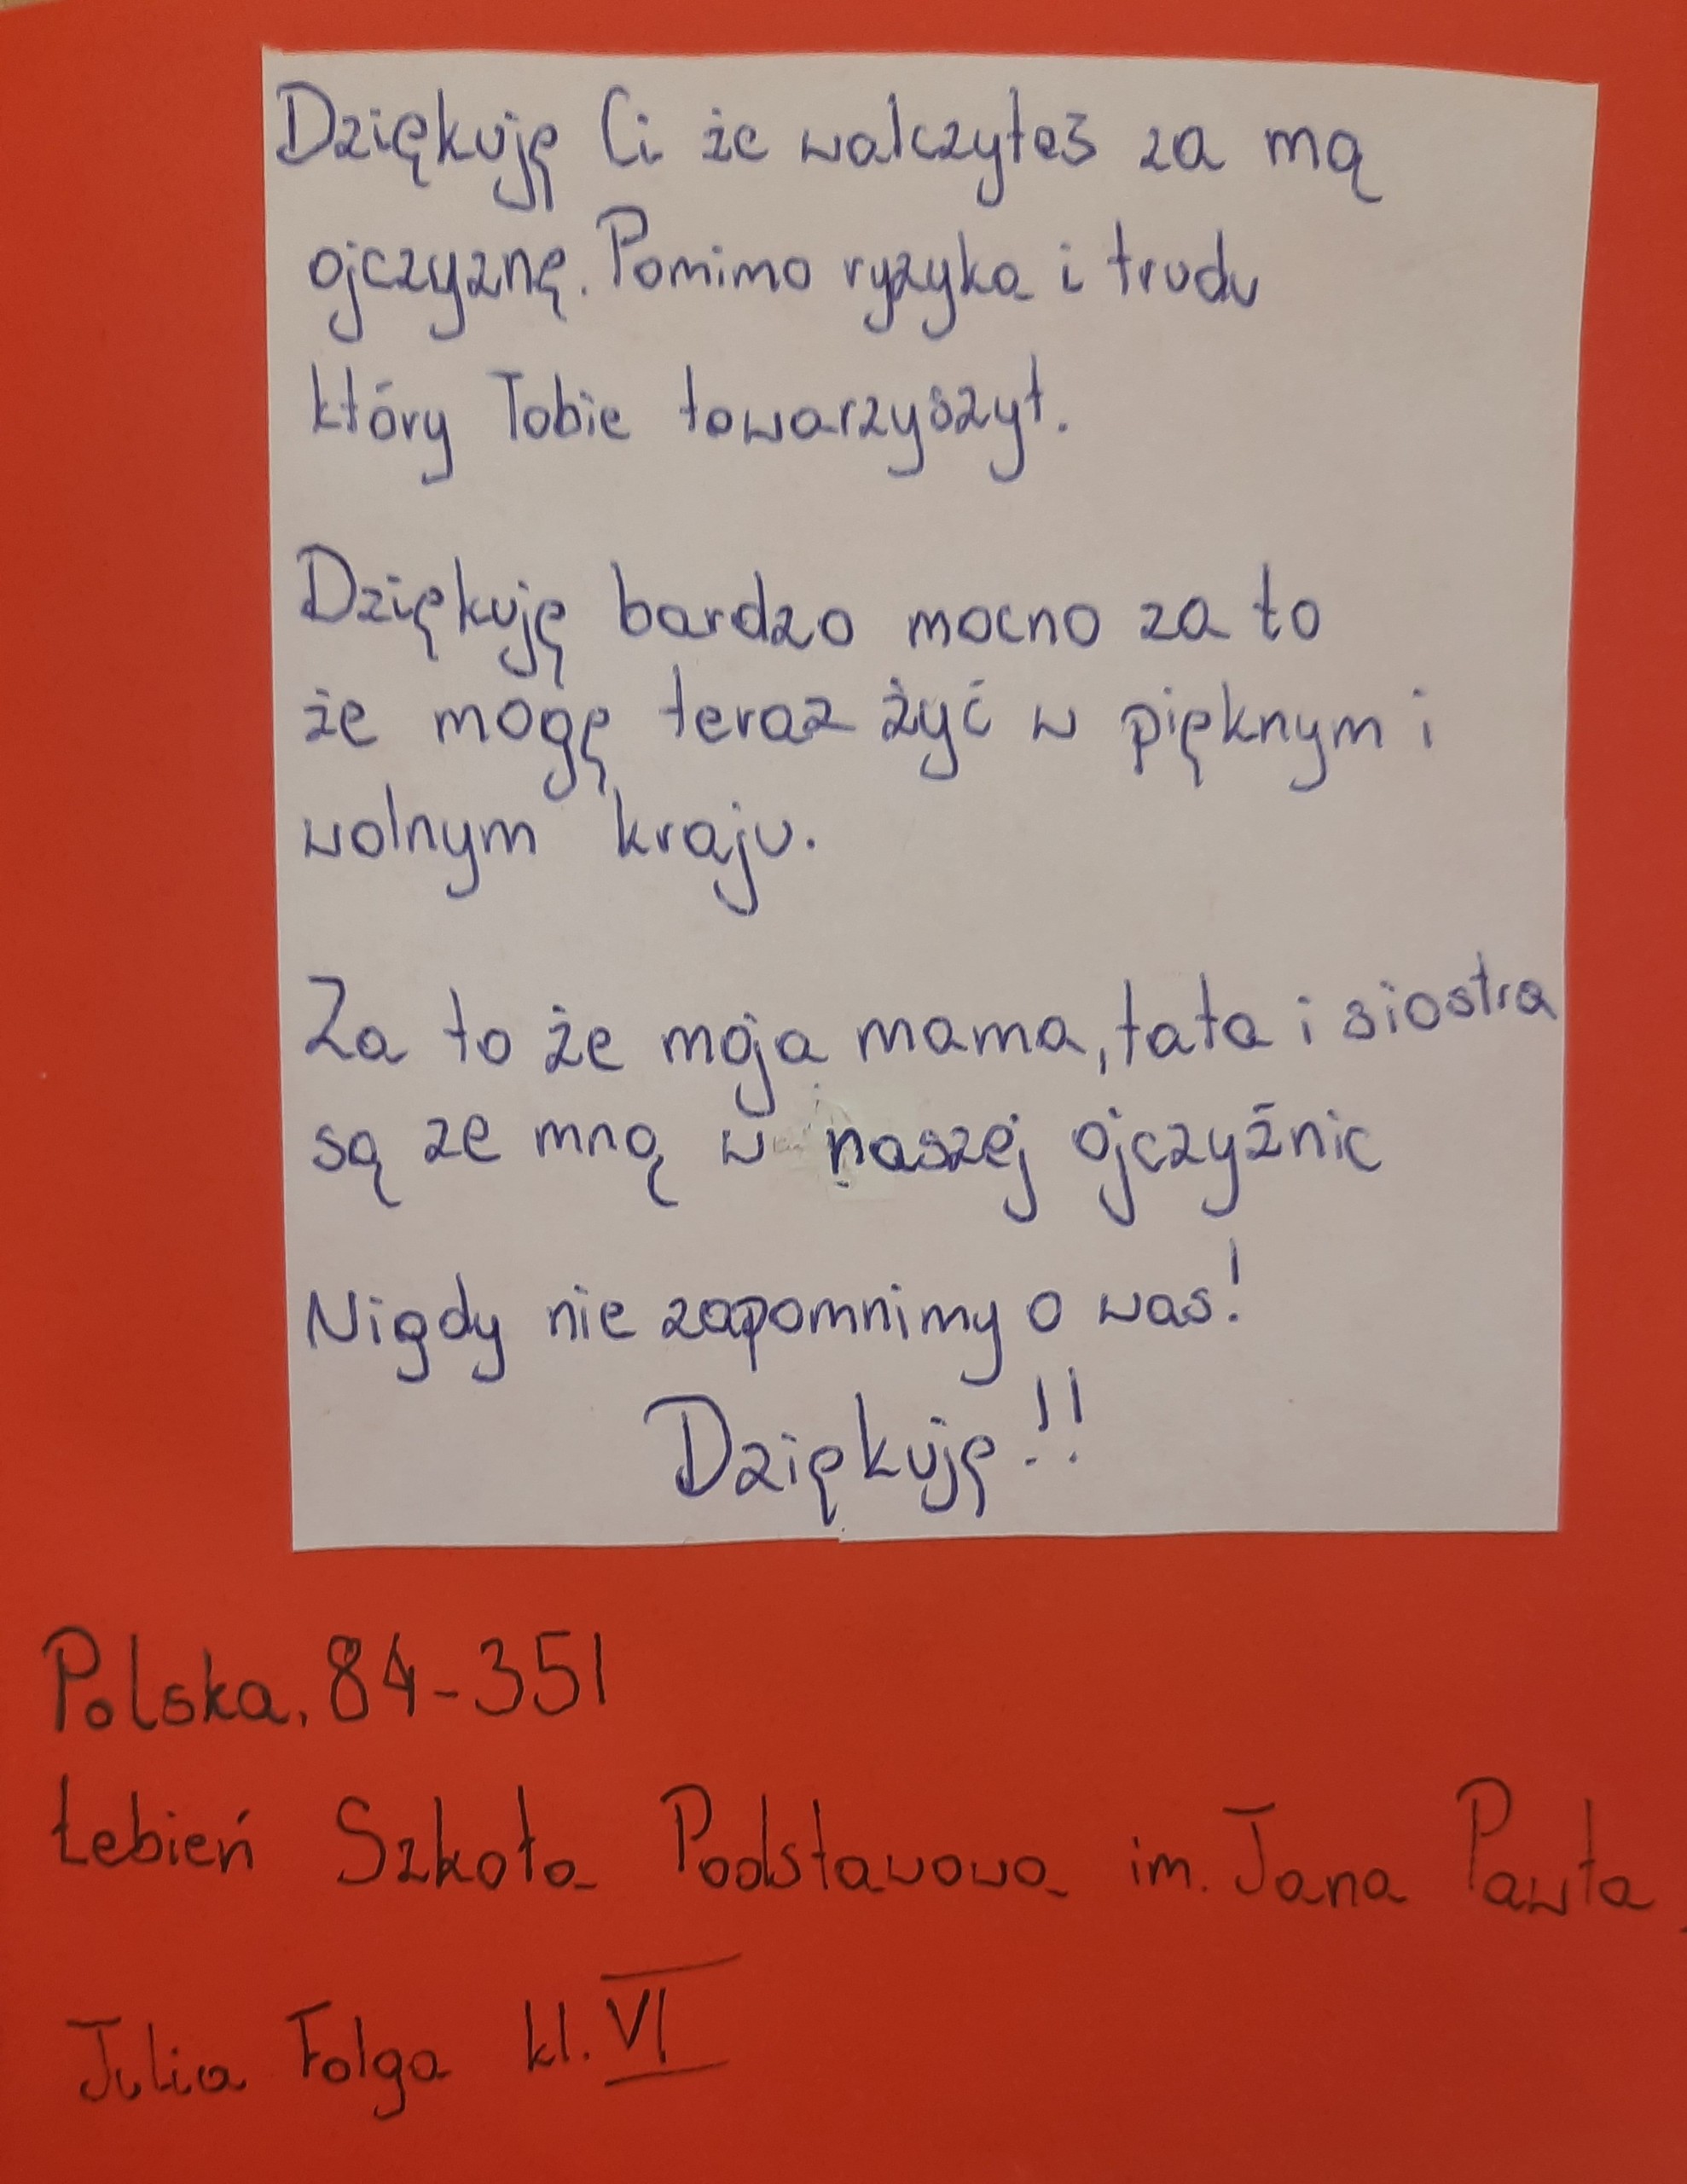 Dziękuję Ci że walczyłeś za mą
ojczyznę. Pomimo ryzyka i trudu
który Tobie towarzyszył.
Dziękuję bardzo mocno za to
że mogę teraz żyć w pięknym i
wolnym kraju.
Za to że moja mama, tata i siostra
są ze mną w naszej ojczyźnie
Nigdy nie zapomnimy o was!
Dziękuję!!
Polska, 84-351
Łebień Szkoła Podstawowa im. Jana Pawła
Julia Folga kl. VI